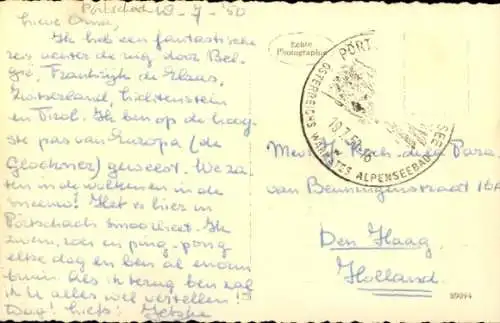 Pörtschach 19-7-'50
Lieve Oma,
Ik heb een fantastische
reis achter de rug door Bel-
gië, Frankrijk de Elzas,
Zwitserland, Lichtenstein
en Tirol. Ik ben op de hoog-
ste pas van Europa (de
Glockner) geweest. We za-
ten in de wolken en in de
sneeuw! Het is hier in
Pörtschach smoorheet. Ik
zwem, roei en ping-pong
elke dag en ben al enorm
bruin. Als ik terug ben zal
ik u alles wel vertellen!
Dag! liefs!
Echte
Photographie
PÖRT SEE
ÖSTERREICHS WÄRMSTES ALPENSEEBAD
19.7.50-16
Mevr. J.
van Benningenstraat
Den Haag
Holland.